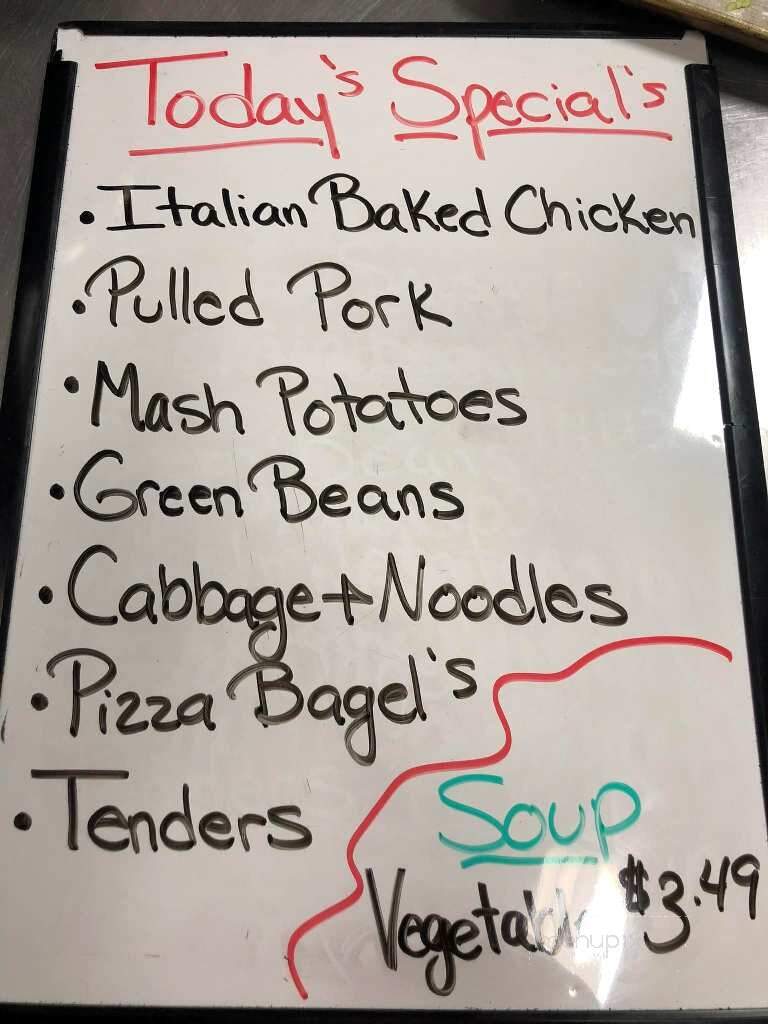 Today's Special's
• Italian Baked Chicken
• Pulled Pork
• Mash Potatoes
• Green Beans
• Cabbage + Noodles
• Pizza Bagel's
• Tenders
Soup
Vegetable $3.49